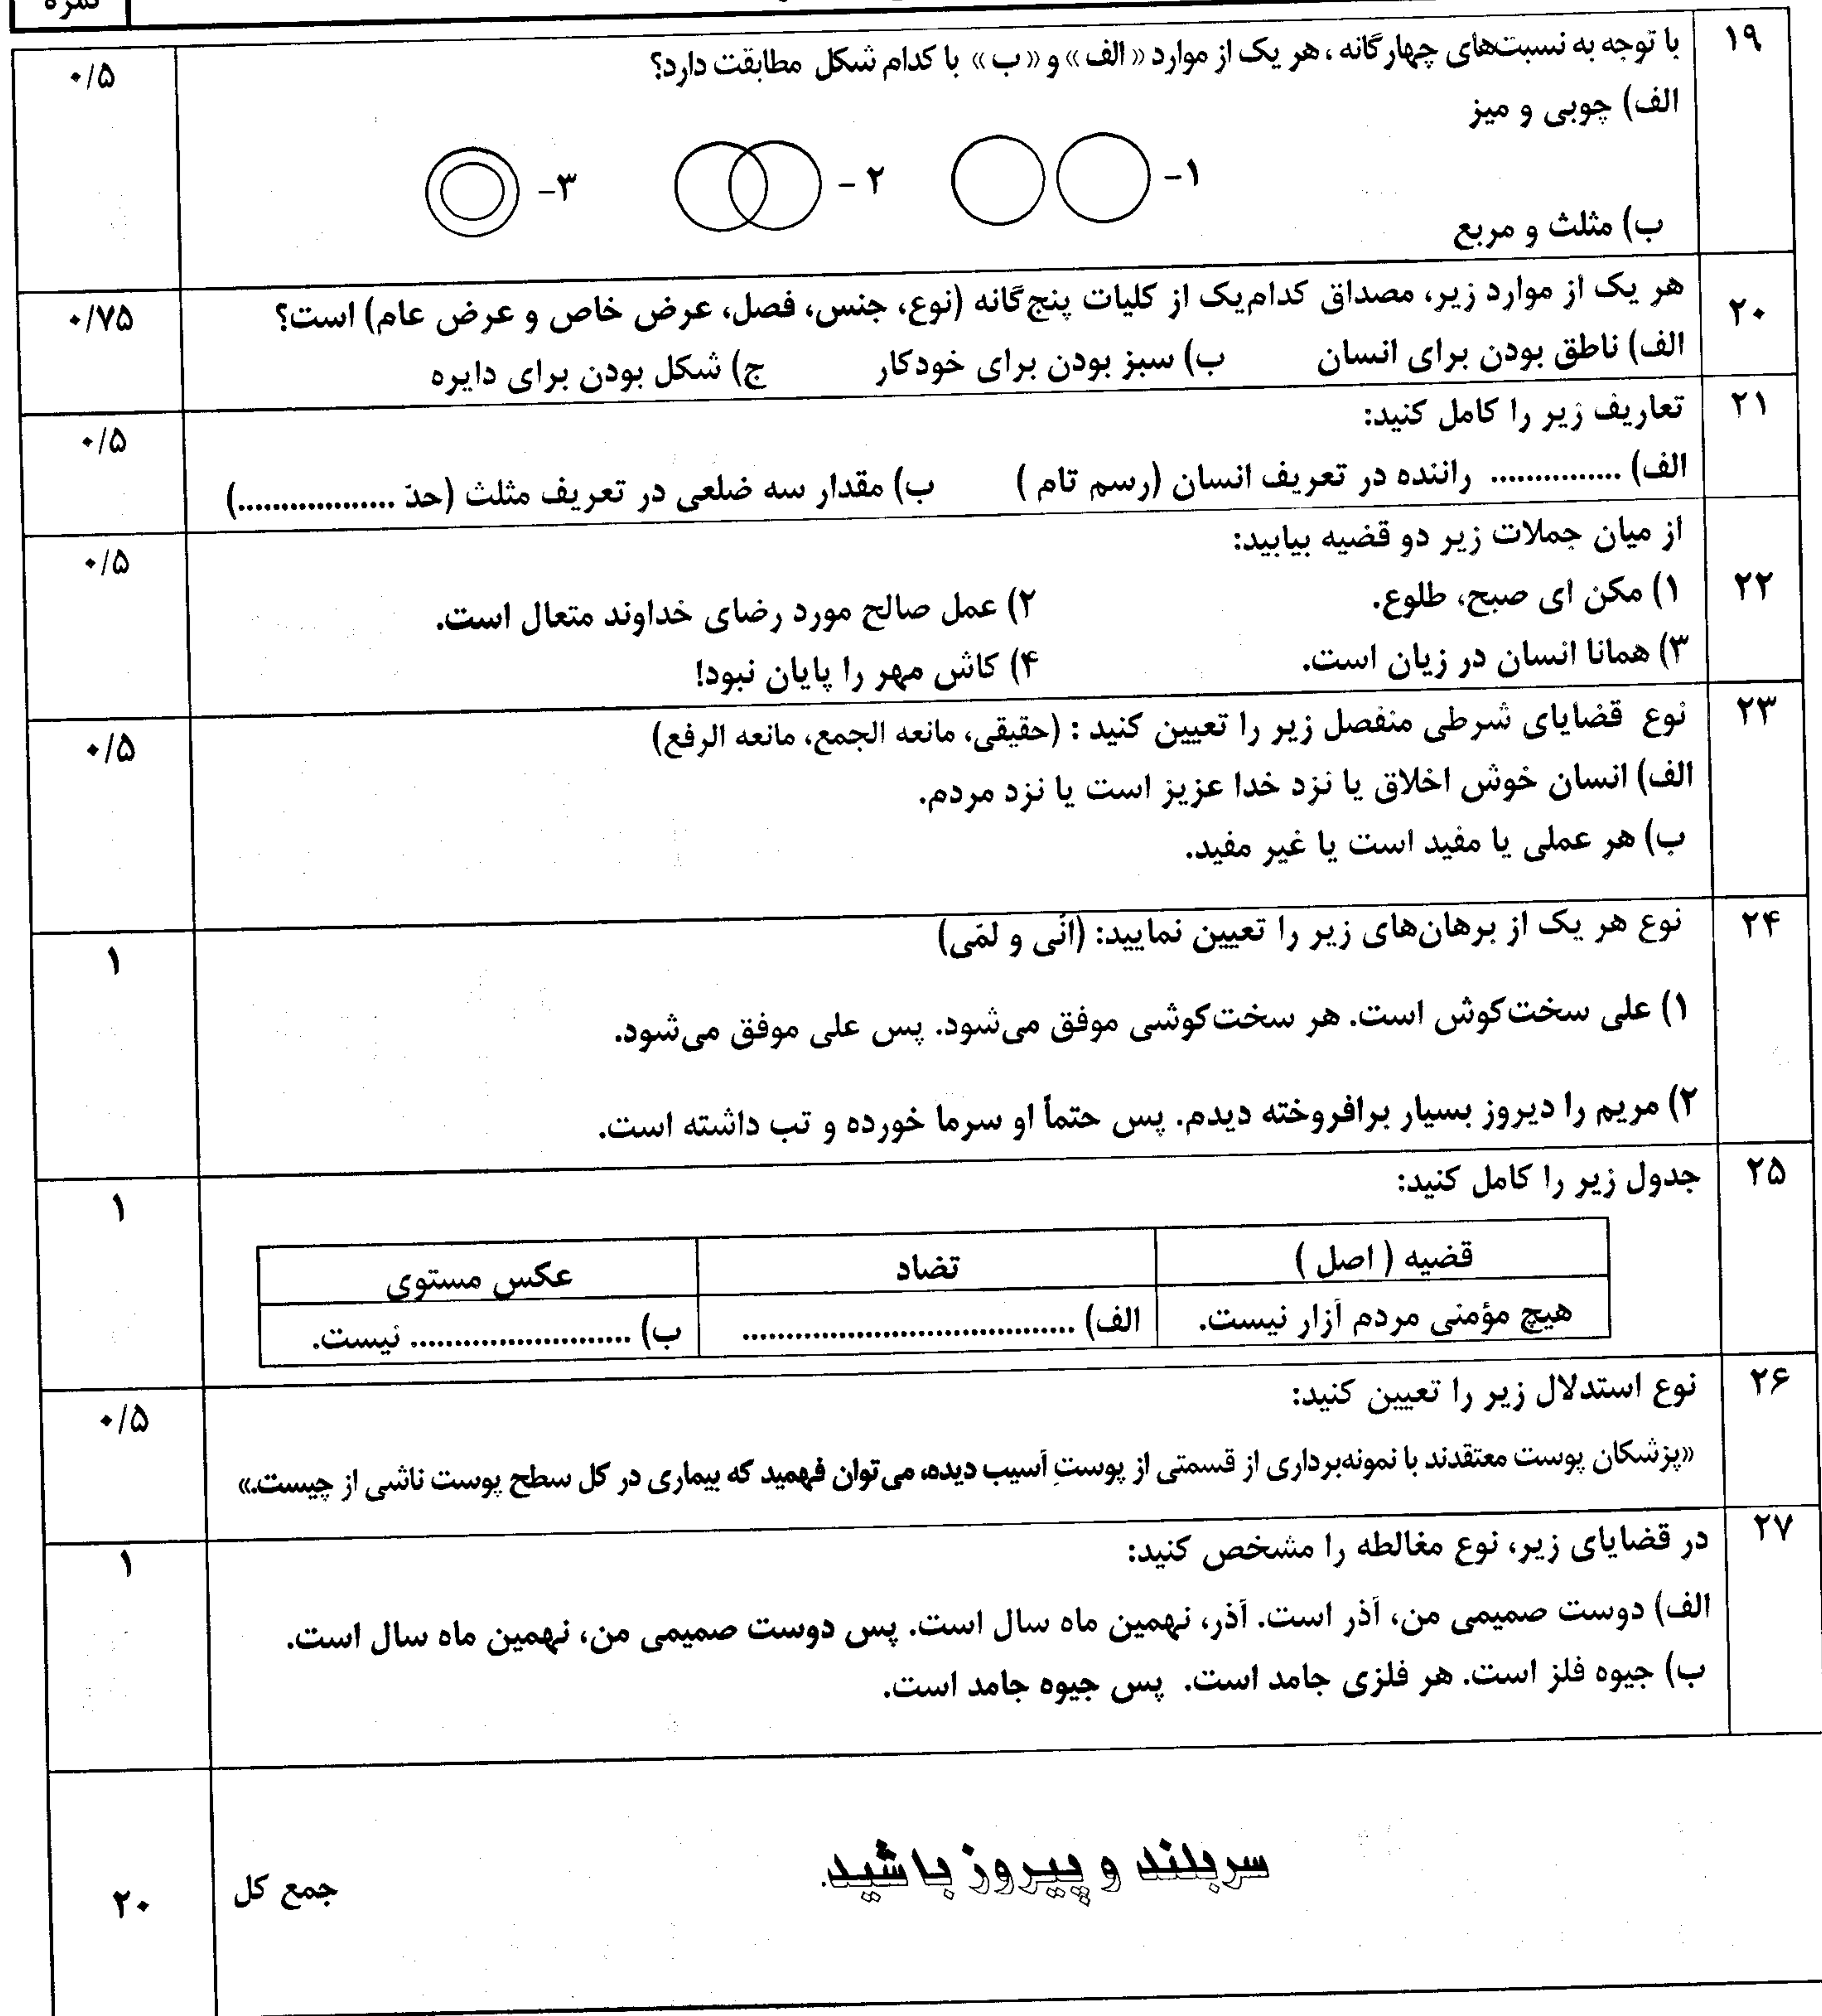 نمره
۱۹ با توجه به نسبت‌های چهارگانه ، هر یک از موارد « الف » و « ب » با کدام شکل مطابقت دارد؟ ۰/۵
الف) چوبی و میز
۱- ۲ - ۳-
ب) مثلث و مربع
۲۰ هر یک از موارد زیر، مصداق کدام‌یک از کلیات پنج‌گانه (نوع، جنس، فصل، عرض خاص و عرض عام) است؟ ۰/۷۵
الف) ناطق بودن برای انسان ب) سبز بودن برای خودکار ج) شکل بودن برای دایره
۲۱ تعاریف زیر را کامل کنید: ۰/۵
الف) ............... راننده در تعریف انسان (رسم تام ) ب) مقدار سه ضلعی در تعریف مثلث (حدّ ..................)
۲۲ از میان جملات زیر دو قضیه بیابید: ۰/۵
۱) مکن ای صبح، طلوع. ۲) عمل صالح مورد رضای خداوند متعال است.
۳) همانا انسان در زیان است. ۴) کاش مهر را پایان نبود!
۲۳ نوع قضایای شرطی منفصل زیر را تعیین کنید : (حقیقی، مانعه الجمع، مانعه الرفع) ۰/۵
الف) انسان خوش اخلاق یا نزد خدا عزیز است یا نزد مردم.
ب) هر عملی یا مفید است یا غیر مفید.
۲۴ نوع هر یک از برهان‌های زیر را تعیین نمایید: (انّی و لمّی) ۱
۱) علی سخت‌کوش است. هر سخت‌کوشی موفق می‌شود. پس علی موفق می‌شود.
۲) مریم را دیروز بسیار برافروخته دیدم. پس حتماً او سرما خورده و تب داشته است.
۲۵ جدول زیر را کامل کنید: ۱
قضیه ( اصل ) تضاد عکس مستوی
هیچ مؤمنی مردم آزار نیست. الف) ...................................... ب) ......................... نیست.
۲۶ نوع استدلال زیر را تعیین کنید: ۰/۵
«پزشکان پوست معتقدند با نمونه‌برداری از قسمتی از پوستِ آسیب دیده، می‌توان فهمید که بیماری در کل سطح پوست ناشی از چیست.»
۲۷ در قضایای زیر، نوع مغالطه را مشخص کنید: ۱
الف) دوست صمیمی من، آذر است. آذر، نهمین ماه سال است. پس دوست صمیمی من، نهمین ماه سال است.
ب) جیوه فلز است. هر فلزی جامد است. پس جیوه جامد است.
سربلند و پیروز باشید.
جمع کل ۲۰